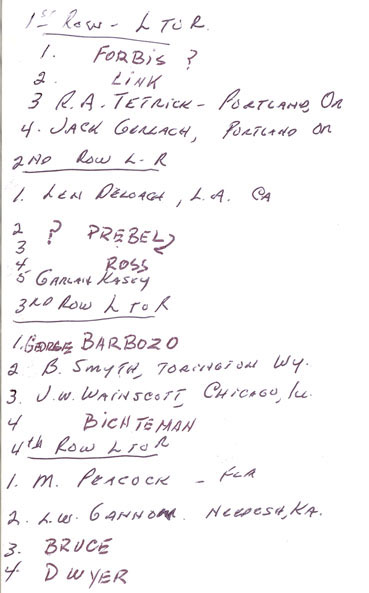 1ST ROW - L TO R.
1. FORBIS ?
2. LINK
3 R.A. TETRICK - PORTLAND, OR
4. JACK GERLACH, PORTLAND OR
2ND ROW L-R
1. LEN DELOACH, L.A. CA
2 ? PREBEL
3
4 ROSS
5 GARLAN KASEY
3RD ROW L TO R
1. GEORGE BARBOZO
2 B. SMYTH, TORINGTON WY.
3. J.W. WAINSCOTT, CHICAGO, ILL.
4 BICHTEMAN
4th ROW L TO R
1. M. PEACOCK - FLA
2. L.W. GANNON. , KA.
3. BRUCE
4. DWYER